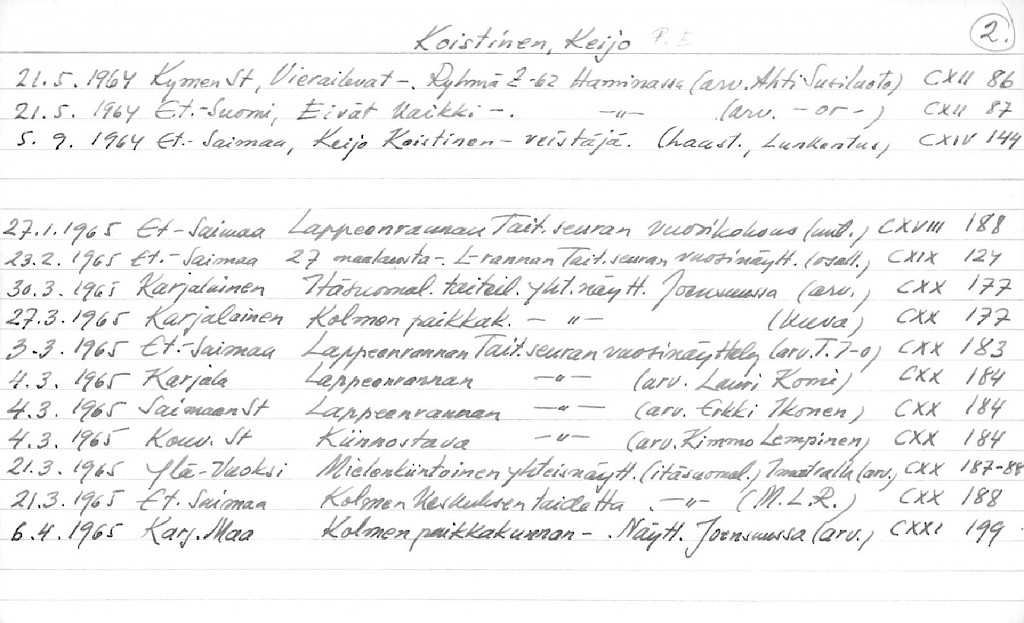 Koistinen, Keijo P.E 2.
21.5.1964 Kymen St, Vierailevat -. Ryhmä Z-62 Haminassa (arv. Ahti Susiluoto) CXII 86
21.5.1964 Et.-Suomi, Eivät kaikki -. -"- (arv. -or-) CXII 87
5.9.1964 Et.-Saimaa, Keijo Koistinen - veistäjä. (haast., Lunkentus) CXIV 144
27.1.1965 Et-Saimaa Lappeenrannan Tait.seuran vuosikokous (uut.) CXVIII 188
23.2.1965 Et.-Saimaa 27 maalausta -. L-rannan Tait.seuran vuosinäytt. (osall.) CXIX 124
30.3.1965 Karjalainen Itäsuomal. taiteil. yht.näytt. Joensuussa (arv.) CXX 177
27.3.1965 Karjalainen Kolmen paikkak. - " - (kuva) CXX 177
3.3.1965 Et.-Saimaa Lappeenrannan Tait.seuran vuosinäyttely (arv. T. J-o) CXX 183
4.3.1965 Karjala Lappeenrannan -"- (arv. Lauri Komi) CXX 184
4.3.1965 Saimaan St Lappeenrannan -"- (arv. Erkki Ikonen) CXX 184
4.3.1965 Kouv. St Kiinnostava -"- (arv. Kimmo Lempinen) CXX 184
21.3.1965 Ylä-Vuoksi Mielenkiintoinen yhteisnäytt. (itäsuomal.) Imatralla (arv.) CXX 187-88
21.3.1965 Et. Saimaa Kolmen keskuksen taidetta .-"- (M.L.R.) CXX 188
6.4.1965 Karj. Maa Kolmen paikkakunnan -. Näytt. Joensuussa (arv.) CXXI 199